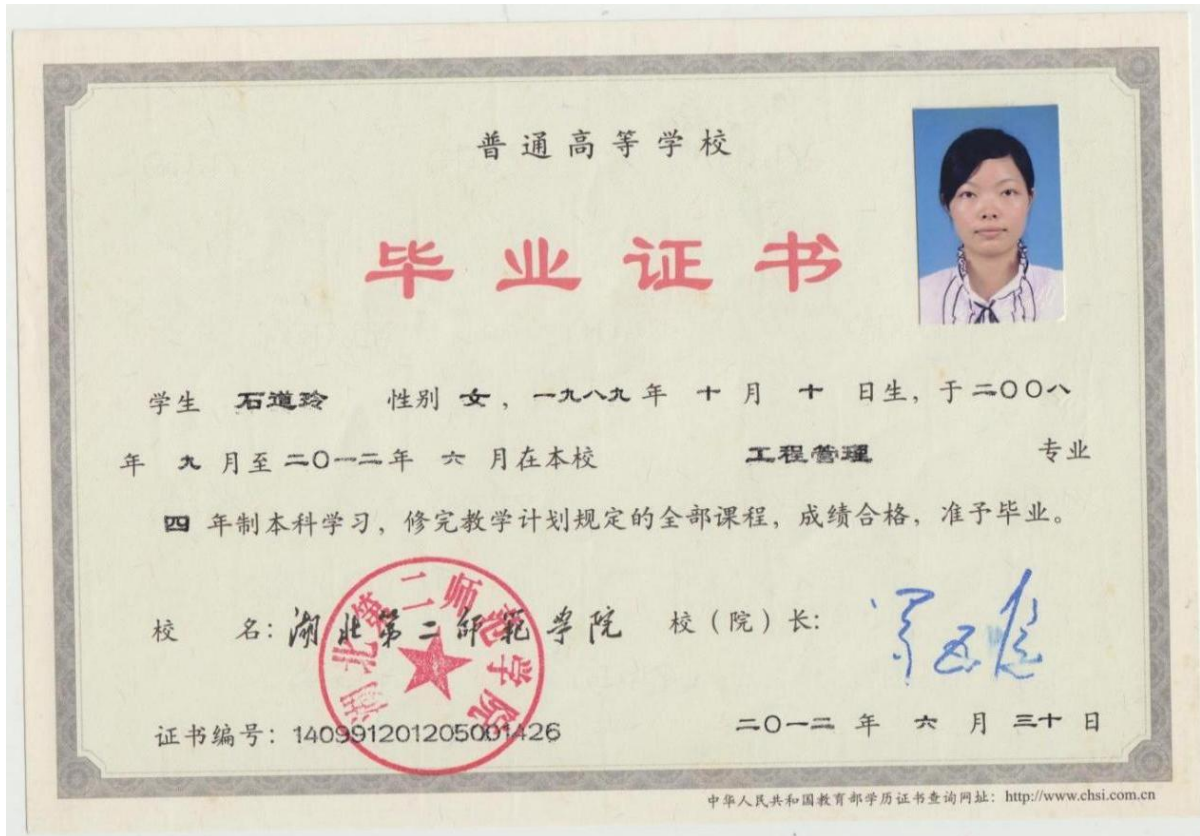 普通高等学校
毕业证书
学生 石道玲 性别 女，一九八九年 十 月 十 日生，于二〇〇八
年 九 月至二〇一二年 六 月在本校 工程管理 专业
四 年制本科学习，修完教学计划规定的全部课程，成绩合格，准予毕业。
校 名：湖北第二师范学院 校（院）长：
湖北第二师范学院
证书编号：140991201205001426 二〇一二 年 六 月 三十 日
中华人民共和国教育部学历证书查询网址：http://www.chsi.com.cn